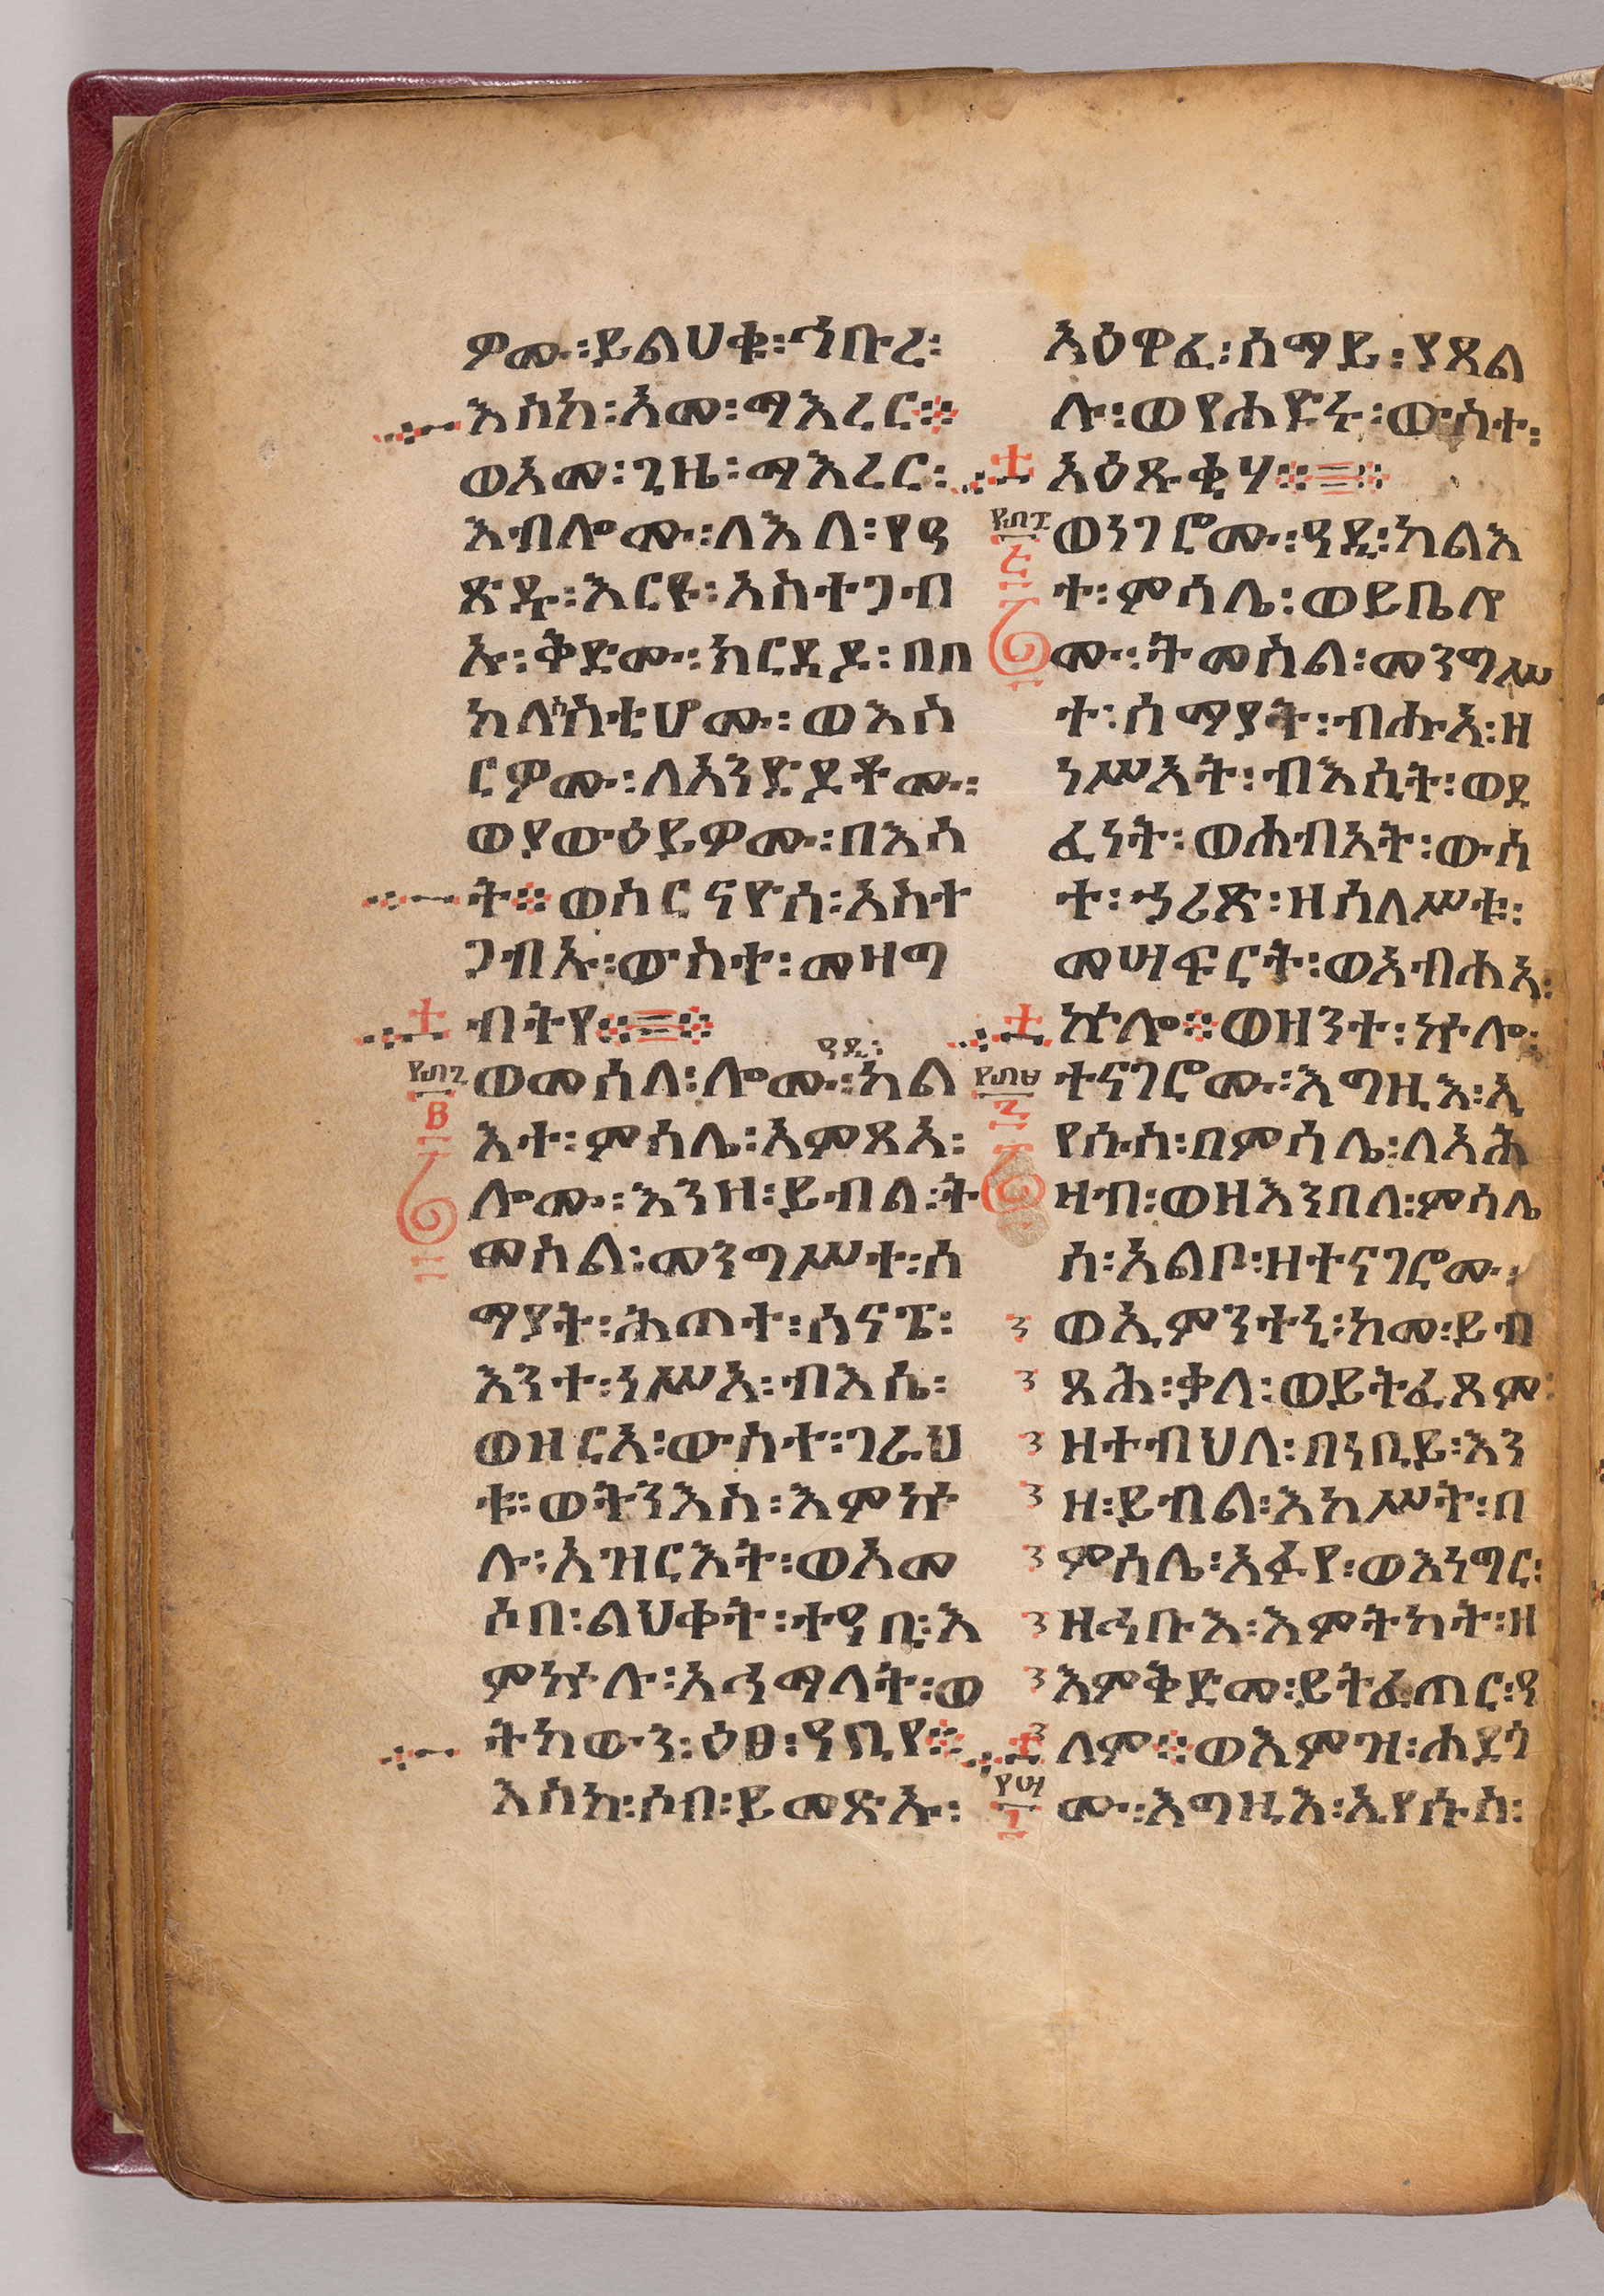 ዎሙ፡ይልህቁ፡ኅቡረ፡
እስከ፡አመ፡ማእረር፨
ወአመ፡ጊዜ፡ማእረር፡
እብሎሙ፡ለእለ፡የዓ
ጽዱ፡እርዩ፡አስተጋብ
ኡ፡ቅድሙ፡ክርዳደ፡በበ
ከላስስቲሆሙ፡ወእስ
ርዎሙ፡ለአንድዶቶሙ፡
ወያውዕይዎሙ፡በእሳ
ት፨ወስርናዮሰ፡አስተ
ጋብኡ፡ውስተ፡መዛግ
ብትየ፨፨
ዓዲ፡
ወመሰለ፡ሎሙ፡ካል
እተ፡ምሳሌ፡አምጽአ፡
ሎሙ፡እንዘ፡ይብል፡ት
መስል፡መንግሥተ፡ሰ
ማያት፡ሕጠተ፡ሰናፔ፡
እንተ፡ነሥአ፡ብእሴ፡
ወዘርአ፡ውስተ፡ገራህ
ቱ፡ወትንእስ፡እምኵ
ሉ፡አዝርእት፡ወአመ
ሶበ፡ልህቀት፡ተዓቢ፡እ
ምኵሉ፡አሕማላት፡ወ
ትከውን፡ዕፀ፡ዓቢየ፨
እስከ፡ሶበ፡ይመጽኡ፡
አዕዋፈ፡ሰማይ፡ያጸል
ሉ፡ወየሐድሩ፡ውስተ፡
አዕጹቂሃ፨፨
ወነገሮሙ፡ዓዲ፡ካልእ
ተ፡ምሳሌ፡ወይቤሎ
ሙ፡ትመስል፡መንግሥ
ተ፡ሰማያት፡ብሑአ፡ዘ
ነሥአት፡ብእሲት፡ወደ
ፈነት፡ወሐብአት፡ውስ
ተ፡ኃሪጽ፡ዘሠለሥቱ፡
መሣፍርት፡ወአብሐአ፡
ኵሎ፨ወዘንተ፡ኵሎ፡
ተናገሮሙ፡እግዚእ፡ኢ
የሱስ፡በምሳሌ፡ለአሕ
ዛብ፡ወዘእንበለ፡ምሳሌ
ሰ፡አልቦ፡ዘተናገሮሙ፡
ወኢምንተኒ፡ከመ፡ይብ
ጻሕ፡ቃለ፡ወይትፈጸም፡
ዘተብህለ፡በነቢይ፡እን
ዘ፡ይብል፡እከሥት፡በ
ምሳሌ፡አፉየ፡ወእነግር፡
ዘኅቡእ፡እምትካት፡ዘ
እምቅድመ፡ይትፈጠር፡ዓ
ለም፨ወእምዝ፡ሐደጎ
ሙ፡እግዚእ፡ኢየሱስ፡